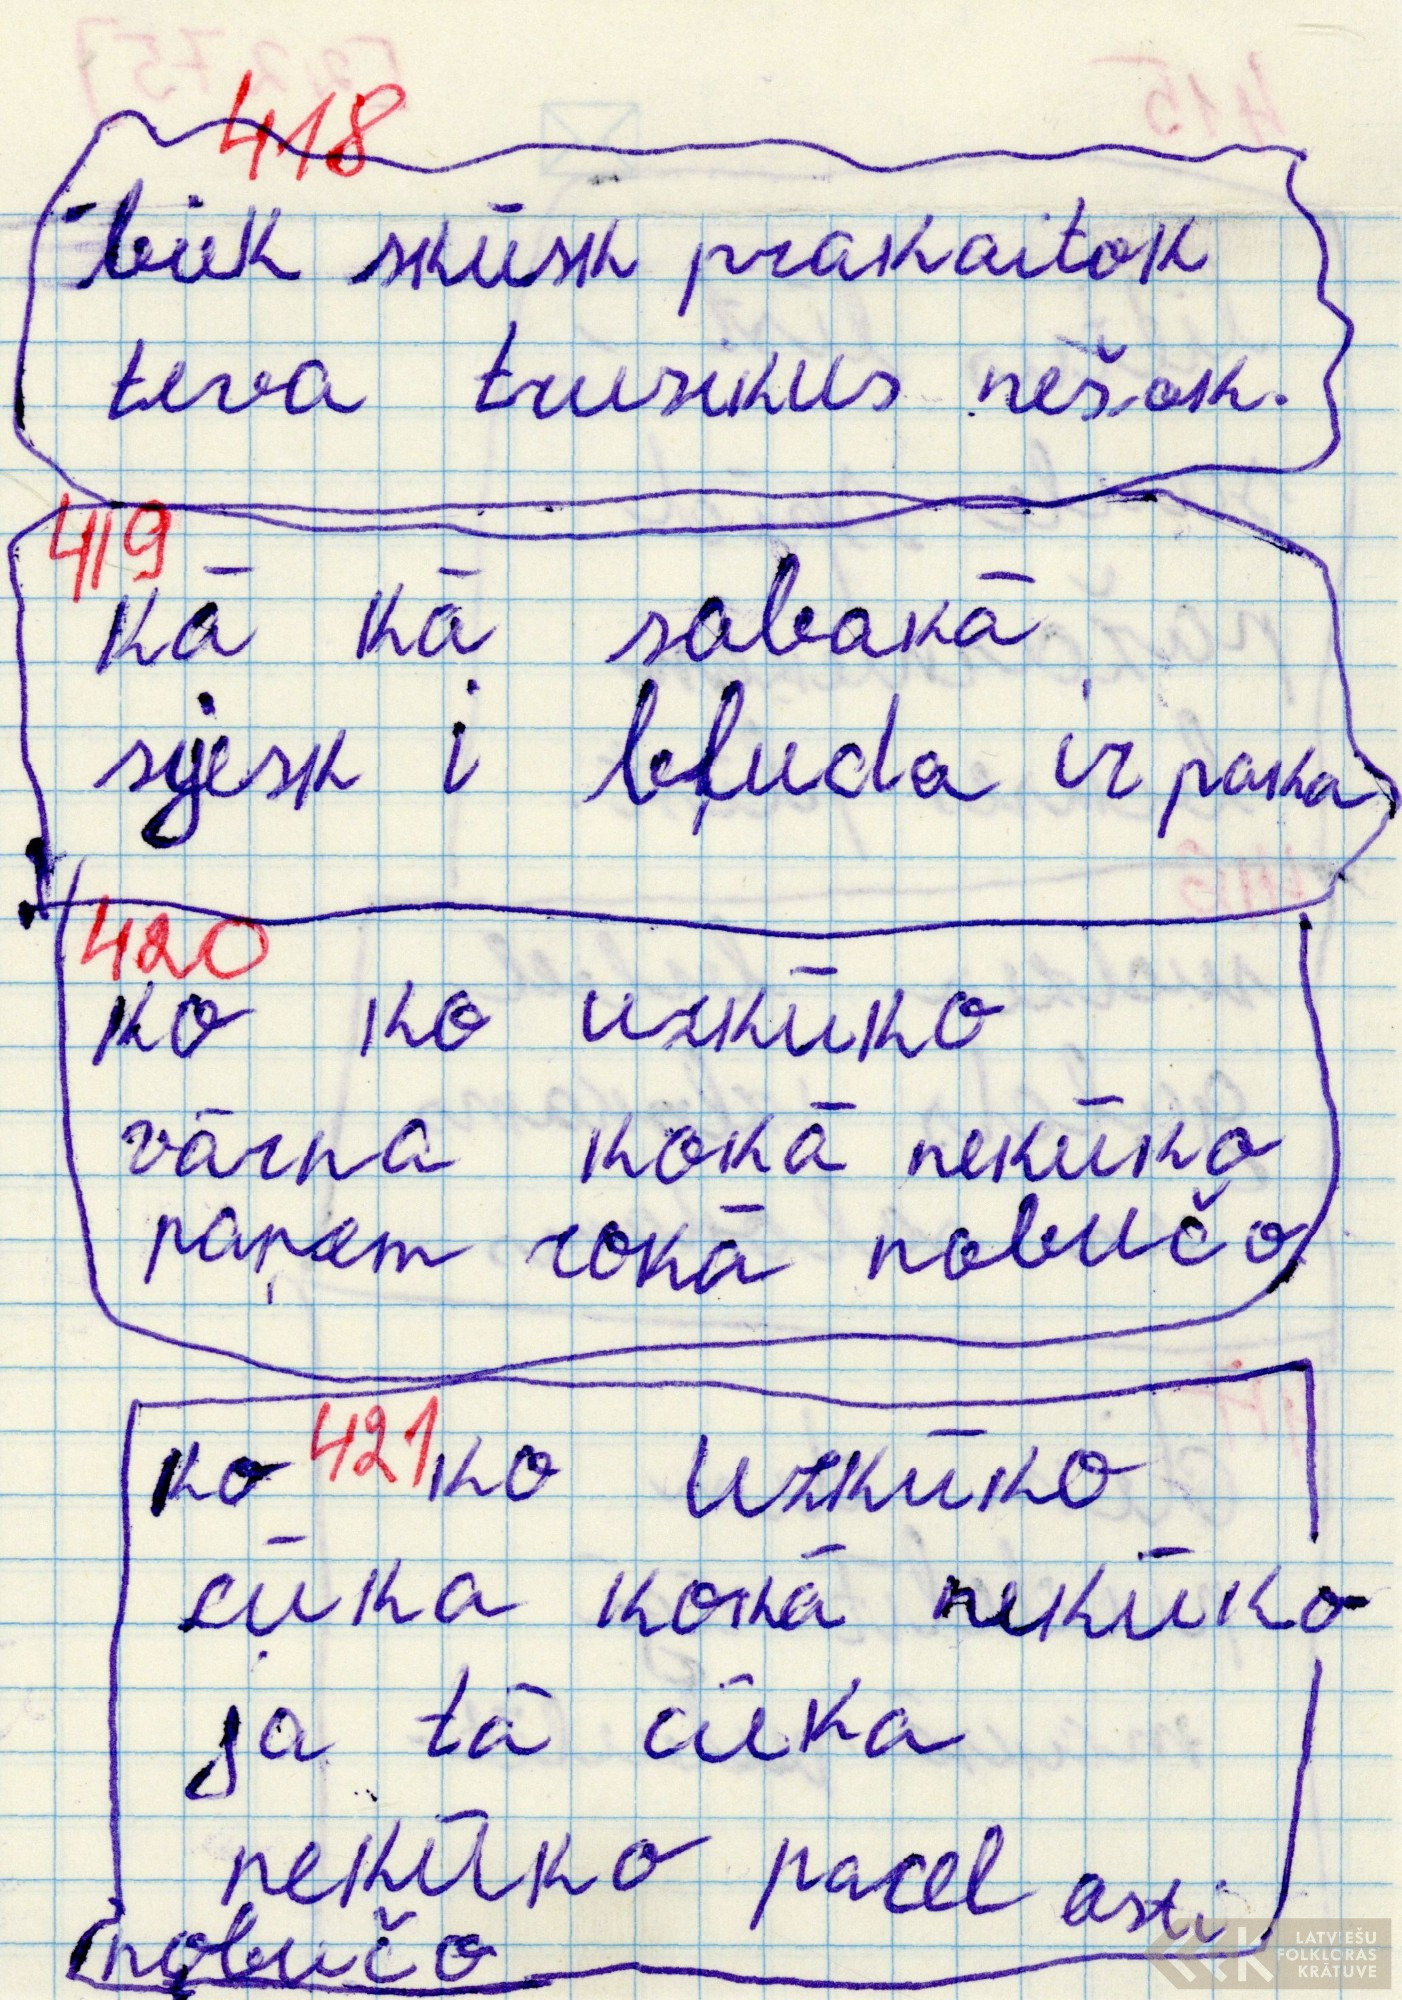 418
būk skūsk prakaitok
teva trusikus nēšok.
419
kā kā sabakā
sjesk i bļuda ir paka
420
ko ko uzkūko
vārna kokā nekūko
paņem rokā nobučo
421
ko ko uzkūko
cūka kokā nekūko
ja tā cūka
nekūko pacel asti
nobučo
LATVIEŠU
FOLKLORAS
KRĀTUVE